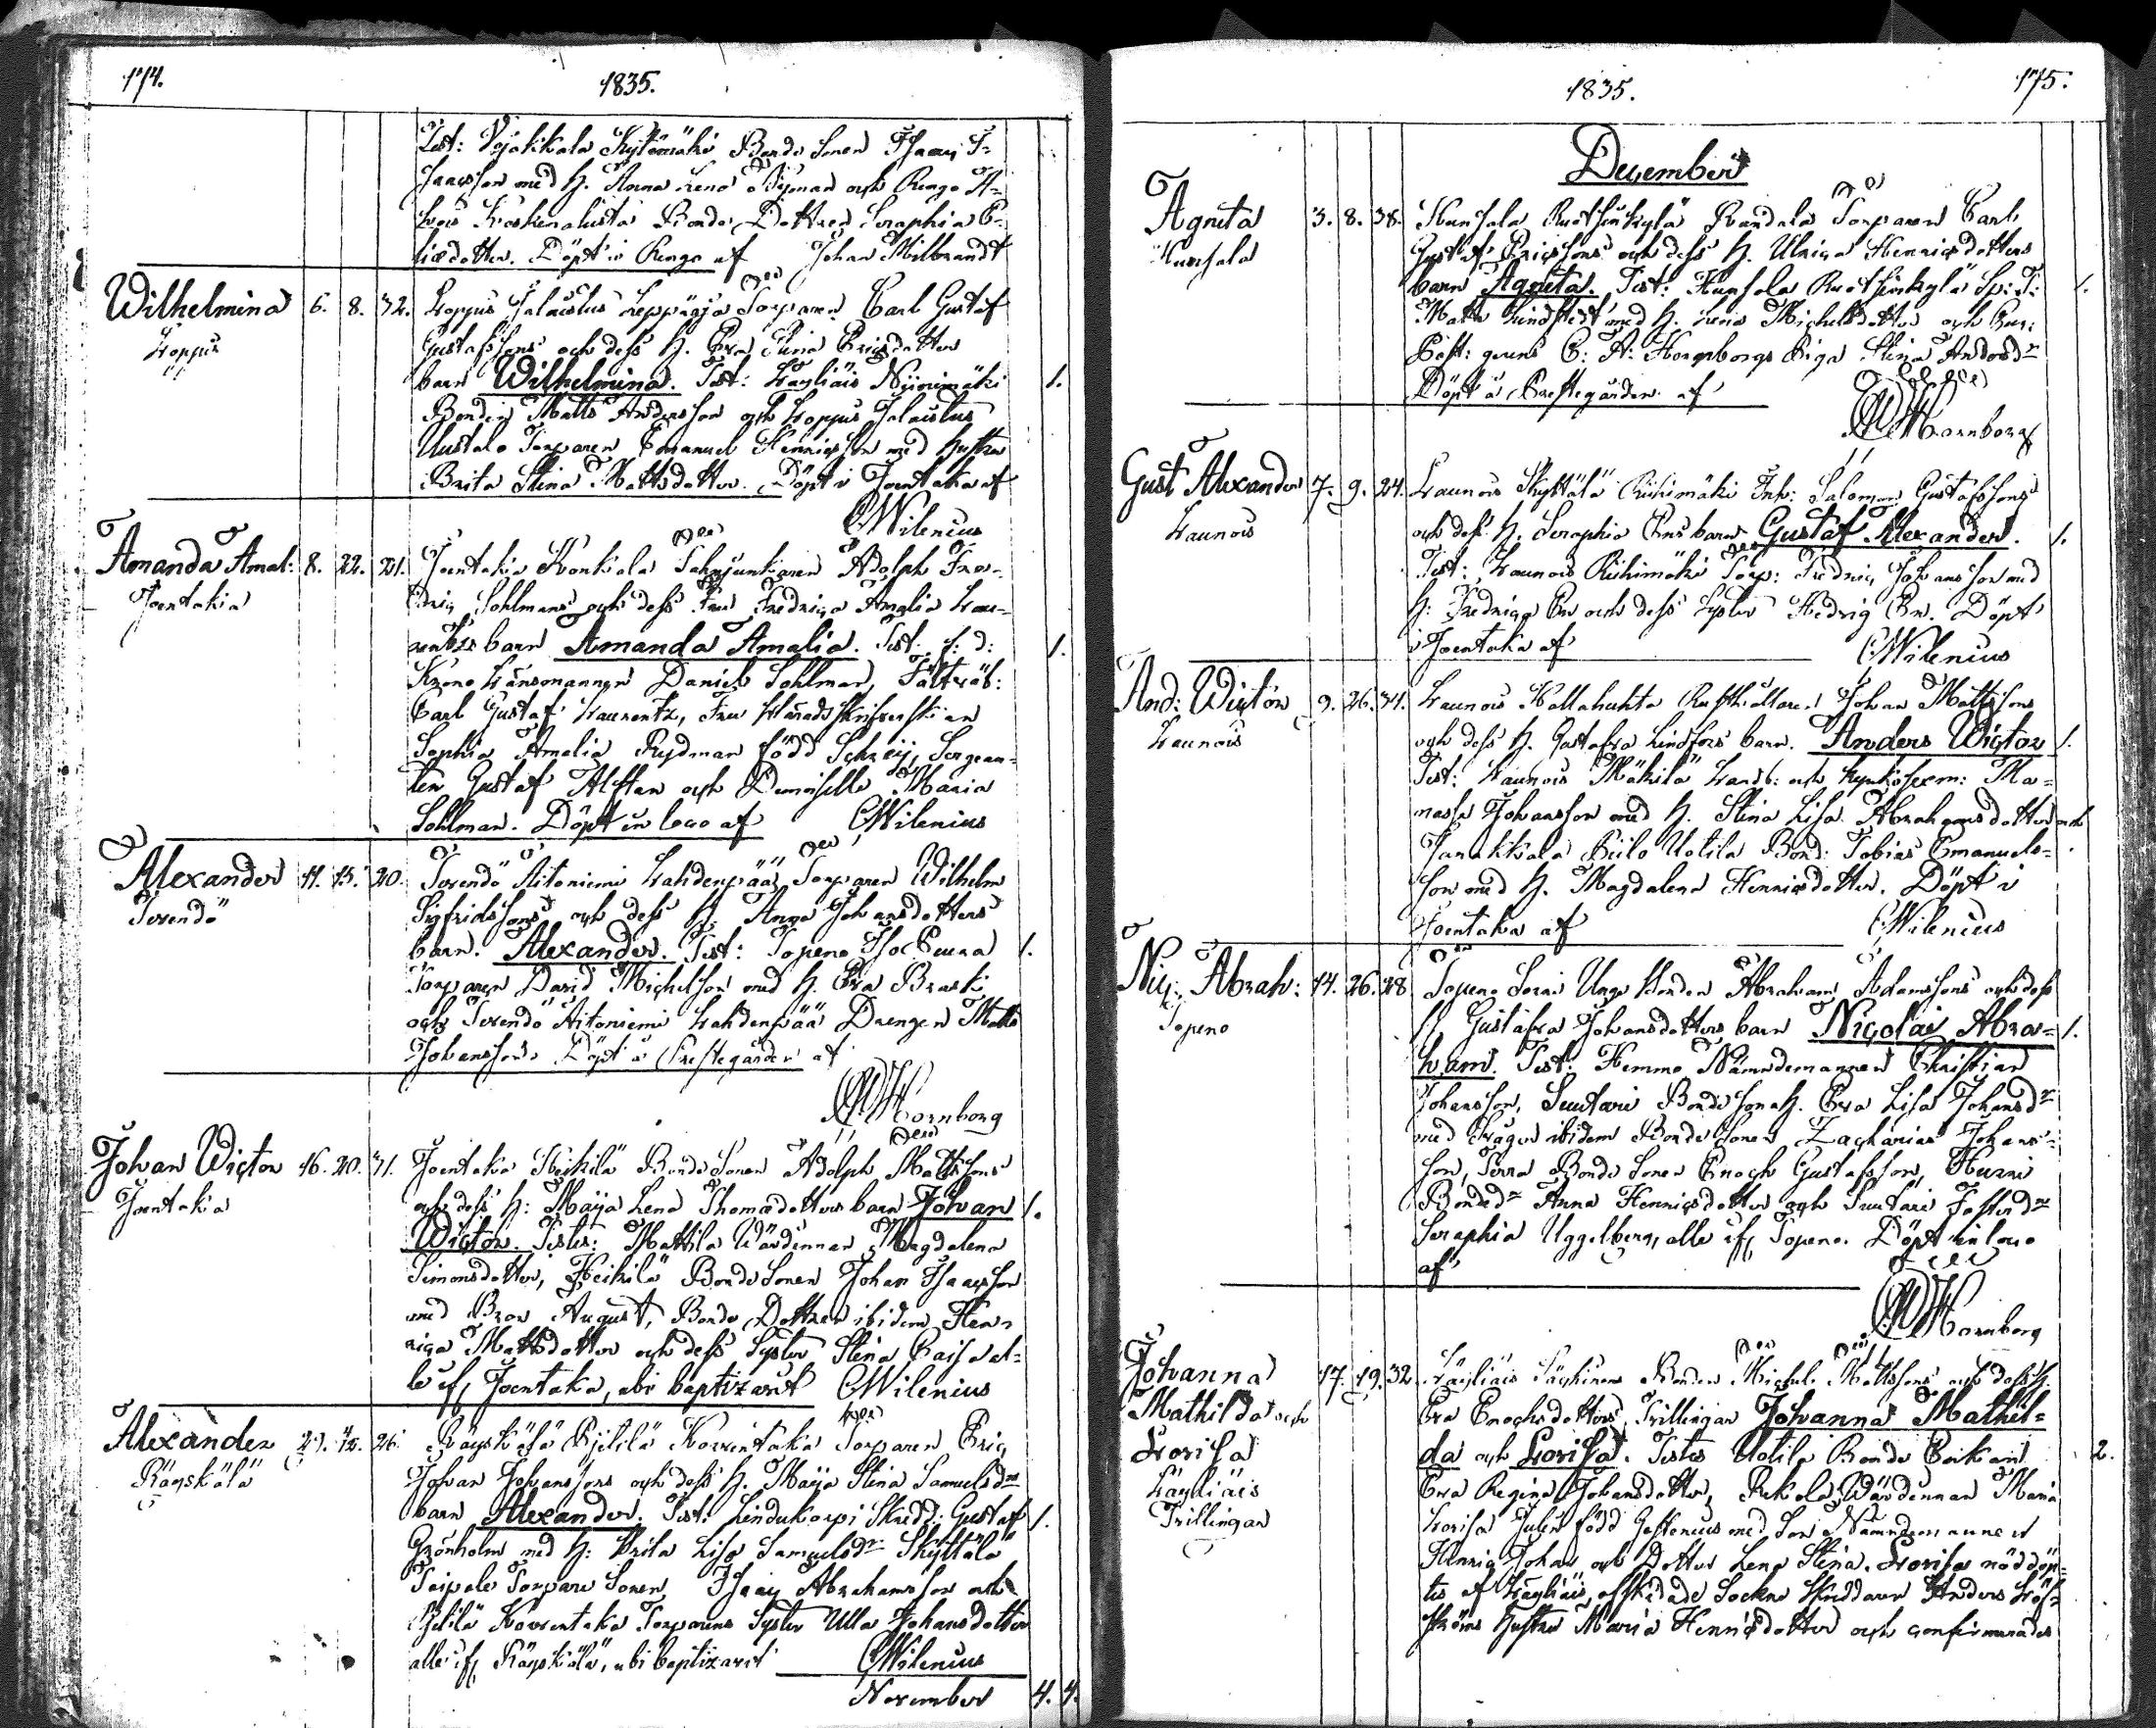 174.
1835.
Test: Vojakkala Kytömäki Bonde Sonen Isaac I-
saacsson med H. Anna Lena Nyman och Renga A-
Bonde Dottren Seraphia E-
liædotter. Döpt i Renga af Johan Milbrandt
Wilhelmina 6. 8. 32. Loppis Jalaistus Leppäoja Torparen Carl Gustaf
Loppis Gustafssons och dess H. Eva Stina Ericsdotters
barn Wilhelmina. Test: Läyliäis Niinimäki 1.
Bonden Matts Andersson och Loppis Jalaistus
Uustalo Torparen Emanuel Henricsson med Hustru
Brita Stina Mattsdotter. Döpt i Joentaka af
CWilenius
Amanda Amal: 8. 22. 21. Joentaka Konkala Fahnjunkaren Adolph Fre-
Joentaka dric Sohlmans och dess Fru Fredrica Amalia Lau-
rentzs barn Amanda Amalia. Test: f: d: 1.
Krono Länsmannen Daniel Sohlman, Fältväb:
Carl Gustaf Laurentz, Fru Häradsskrifverskan
Sophia Amelia Rydman född Schreij, Sergean-
ten Gustaf Alftan och Demoiselle Maria
Sohlman. Döpt in loco af CWilenius
Alexander 11. 15. 20. Terendö Aitoniemi Lahdenpää Torparen Wilhelm
Terendö Sigfridssons och dess H. Anna Johansdotters
barn. Alexander. Test: Topeno Iso Eerra 1.
Torparen David Michelsson med H. Eva Braski
och Terendö Aitoniemi Lahdenpää Drengen Matts
Johansson. Döpt i Prestegården af
Hornborg
Johan Victor 16. 20. 31. Joentaka Heikilä Bonde Sonen Adolph Mattssons
Joentaka och dess H: Maija Lena Thomædotters barn Johan 1.
Victor. Testes: Mattila Värdinnan Magdalena
Simonsdotter, Heikilä Bonde Sonen Johan Isaacsson
med Bror August, Bonde Dottren ibidem Hen-
rica Mattsdotter och dess Syster Stina Caisa al-
le if: Joentaka, ubi baptizavit CWilenius
Alexander 29. 12. 26. Räyskälä Pjetilä Korrentaka Torparen Eric
Räyskälä Johan Johanssons och dess H. Maija Stina Samuelsdrs
barn Alexander. Test: Lindukorpi Skredd: Gustaf 1.
Grönholm med H: Brita Lisa Samuelsdr Skyttälä
Taipale Torpare Sonen Isaac Abrahamsson och
Pjetilä Korrentaka Torparens Syster Ulla Johansdotter
alle if: Räyskälä, ubi baptizavit CWilenius
November 4. 4.
1835.
175.
December
Agneta 3. 8. 38. Hunsala Ruotsinkylä Randala Torparen Carl
Hunsala Gustaf Ericssons och dess H. Ulrica Henricsdotters
barn Agneta. Test: Hunsala Ruotsinkylä Sp: T: 1.
Matts Lindstedt med H. Lena Michelsdotter och Cur:
Past: gerens C: A: Hornborgs Piga Stina Andersdr
Döpt i Prestegården af
Hornborg
Gust: Alexander 7. 9. 24. Launois Skyttälä Riihimäki Inh: Salomon Gustafssons
Launois och dess H. Seraphia Ers barn Gustaf Alexander. 1.
Test: Launois Riihimäki Torp: Fredric Johansson med
H: Fredrica Er och dess Syster Hedvig Er. Döpt
i Joentaka af CWilenius
And: Victor 9. 26. 34. Launois Kallahuhta Rusthållaren Johan Mattssons
Launois och dess H. Gustafva Lindfors barn. Anders Victor 1.
Test: Launois Mäkilä Landb: och Kyrkosexm: Ma-
nasse Johansson med H. Stina Lisa Abrahamsdotter och
Janakkala Uotila Bond: Tobias Emanuels-
son med H. Magdalena Henricsdotter. Döpt i
Joentaka af CWilenius
Nic: Abrah: 14. 26. 28 Topeno Unge Bonden Abraham Adamssons och dess
Topeno H. Gustafva Johansdotters barn Nicolai Abra- 1.
ham. Test: Hemmo Nämndemannen Christian
Johansson, Suutari Bonde Sonen H. Eva Lisa Johansdr
med Svåger ibidem Bonde Sonen Zacharias Johans-
son, Bonde Sonen Enoch Gustafsson,
Bonded Anna Henricsdotter och Suutari Fosterdr
Seraphia Uggelberg, alle if: Topeno. Döpt in loco
af
Hornborg
Johanna 17. 19. 32. Läyliäis Bonden Michel Mattssons och dess H.
Mathilda och Eva Enochsdotters Trillingar Johanna Mathil-
Lovisa da och Lovisa. Testes Uotila Bonde Enkan 2.
Läyliäis Eva Regina Johansdotter, Rekola Värdinnan Maria
Trillingar Lovisa Julin född Gestenius med Son Nämndemannen
Henric Johan och Dotter Lena Stina. Lovisa nöddöp-
tes af Läyliäis afskedade Sockne Skreddaren Anders Löf-
ströms Hustru Maria Henricsdotter och confirmerades